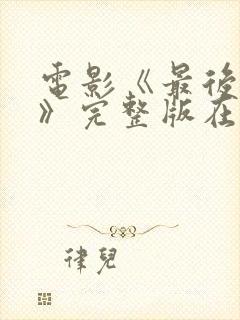 電影《最後
》完整版在
律兒